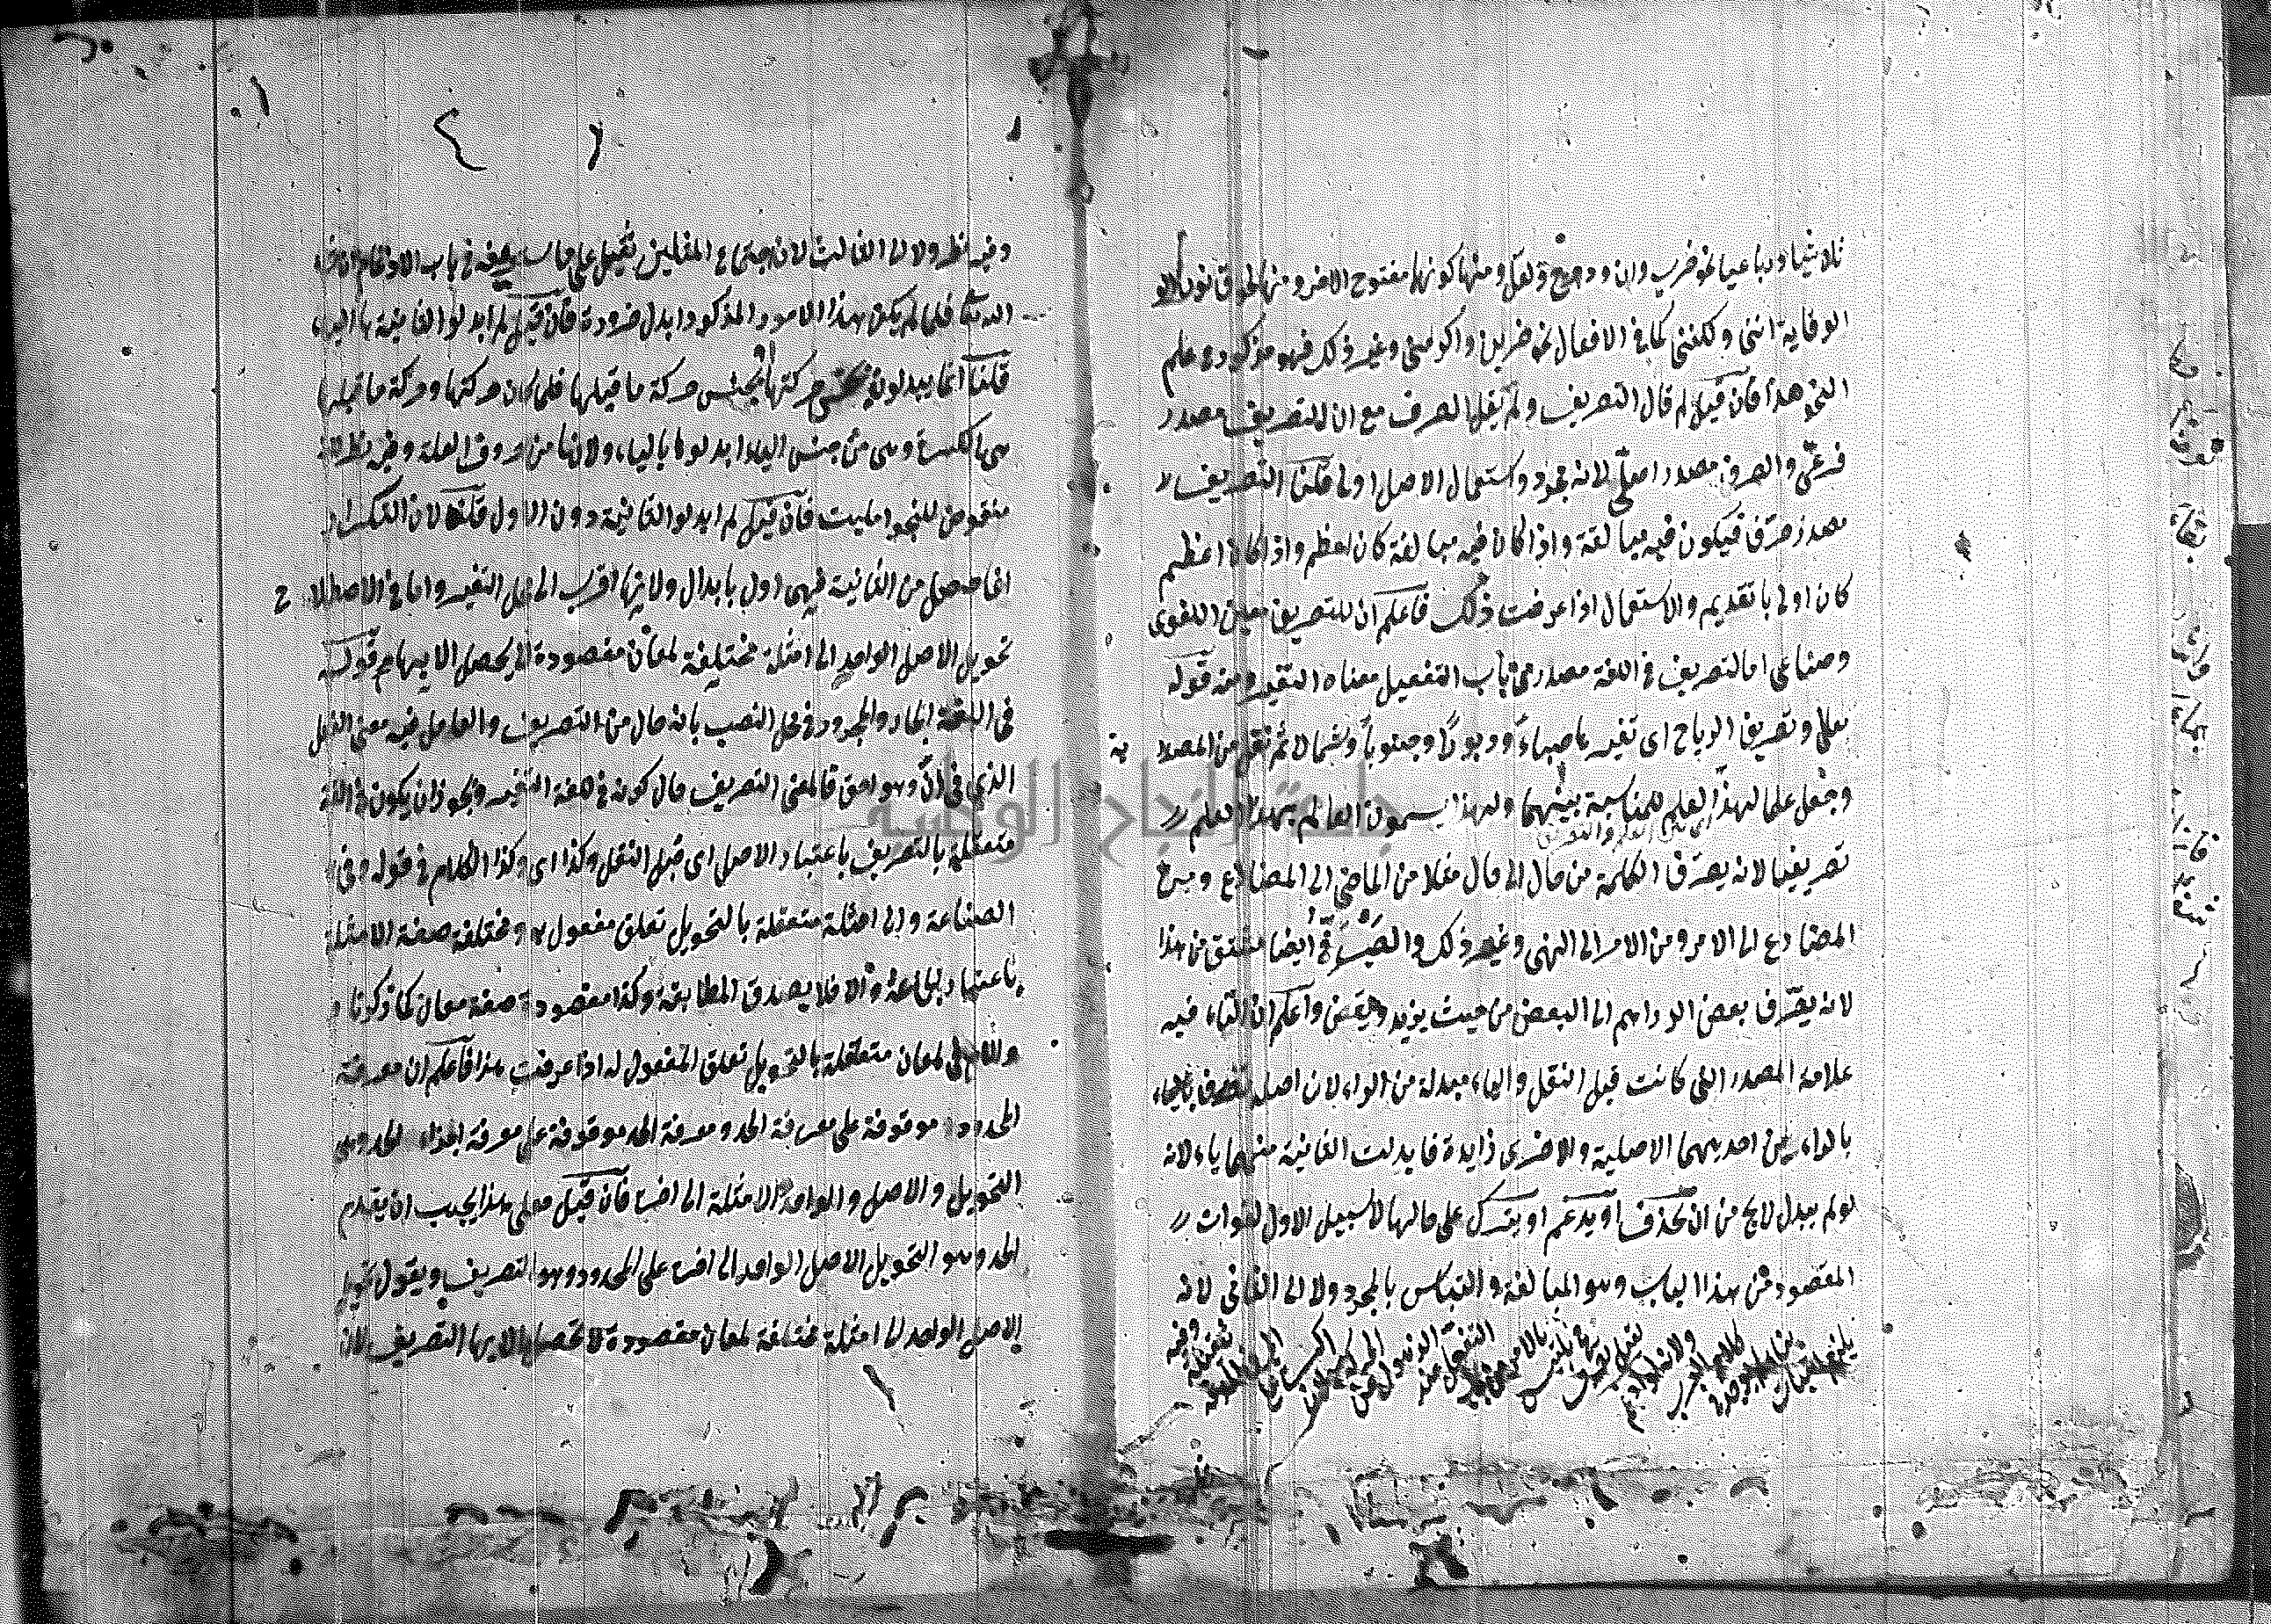 ثلاثيا ورباعيا نحو ضرب وان ودحرج ولعل ومنها كونها مفتوح الاخر ومنها لحوق نون
الوقاية اننى ولكننى كما فى الافعال نحو ضربنى واكرمنى وغير ذلك فهو مذكور فى علم
النحو هذا فان قيل لم قال التصريف ولم يقل الصرف مع ان للتصريف مصدر
فرعى والصرف مصدر اصلى لانه مجرد واستعمال الاصل اولى قلنا التصريف
مصدر صرّف فيكون فيه مبالغة واذا كان فيه مبالغة كان اعظم واذا كان اعظم
كان اولى بالتقديم والاستعمال اذا عرفت ذلك فاعلم ان للتصريف معنين اللغوى
وصناعى اما التصريف فى اللغة مصدر من باب التفعيل معناه التغير ومنه قوله
تعالى وتصريف الرياح اى تغيرها صباءً ودبورًا وجنوبًا وشمالا ثم نقل من المصدر
ية
وجعل علما لهذا العلم للمناسبة بينهما ولهذا يسمون العالم بهذا العلم
تصريفيا لانه يصرّف الكلمة من حال الى حال مثلا من الماضى الى المضارع ومن
المضارع الى الامر ومن الامر الى النهى وغير ذلك والصَيْرَفِىّ ايضا مشتق من هذا
لانه يصرّف بعض الدراهم الى البعض من حيث يزيد وينقص واعلم ان التاء فيه
علامة المصدر التى كانت قبل النقل والياء مبدلة من الراء لان اصله
بالراء ين احديهما الاصلية والاخرى زايدة فابدلت الثانية منهما ياء لانه
لو لم يبدل لايخ من ان يحذف او يدغم او يترك على حالها لا سبيل الاول لفوات
المقصود من هذا الباب وهو المبالغة والتباس بالمجرد ولا الى الثانى لانه
وفيه نظر ولا الى الثالث لان اجتماع المثلين ثقيل على ما سيجئ فى باب الادغام ان شاء
الله تعا فلما لم يكن هذا الامور المذكور ابدل ضرورة فان قيل لم ابدلوا الثانية بالياء
قلنا انما يبدلون حركتها بجنس حركة ما قبلها فلما كان حركتها وحركة ما قبلها
هى الكسرة وهى من جنس الياء ابدلوها بالياء ولانها من حروف العلة وفيه نظر لانه
منقوض للنحو امليت فان قيل لم ابدلوا الثانية دون الاول قلنا لان التكرار
انما حصل من الثانية فهى اولى بابدال ولانها اقرب الى محل التغير واما فى الاصطلاح
تحويل الاصل الواحد الى امثلة مختلفة لمعان مقصودة لا يحصل الا بها م قوله
فى اللغة الجار والمجرور فى محل النصب بانه حال من التصريف والعامل فيه معنى الفعل
الذى فى امّا وهو احق قالمعنى التصريف حال كونه فى لغة التغير ويجوز ان يكون فى اللغة
متعلقة بالتصريف باعتبار الاصل اى قبل النقل وكذا اى وكذا الكلام فى قوله وفى
الصناعة والى امثلة متعلقة بالتحويل تعلق مفعول به ومختلفة صفة الامثلة
باعتبار الجماعة والا فلا يصدق المطابقة وكذا مقصودة صفة معان كما ذكرنا
واللام فى لمعان متعلقة بالتحويل تعلق المفعول له اذا عرفت هذا فاعلم ان معرفة
المحدود موقوفة على معرفة الحد ومعرفة الحد موقوفة على معرفة اجزاء الحد وهى
التحويل والاصل والواحد الامثلة الى اخره فان قيل فعلى هذا يجب ان يقدم
الحد وهو التحويل الاصل الواحد الى اخره على المحدود وهو التصريف ويقول تحويل
الاصل الواحد الى امثلة مختلفة لمعان مقصودة لا تحصل الا بها التصريف لان
جامعة النجاح الوطنية